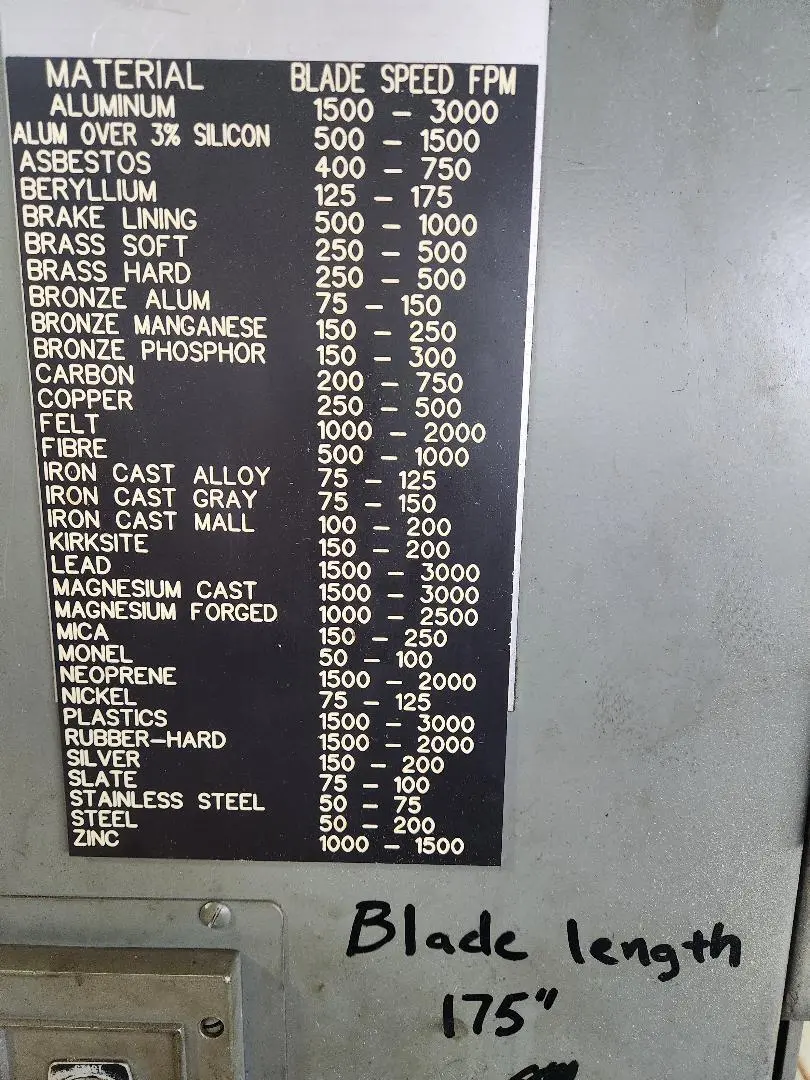 MATERIAL BLADE SPEED FPM
ALUMINUM 1500 – 3000
ALUM OVER 3% SILICON 500 – 1500
ASBESTOS 400 – 750
BERYLLIUM 125 – 175
BRAKE LINING 500 – 1000
BRASS SOFT 250 – 500
BRASS HARD 250 – 500
BRONZE ALUM 75 – 150
BRONZE MANGANESE 150 – 250
BRONZE PHOSPHOR 150 – 300
CARBON 200 – 750
COPPER 250 – 500
FELT 1000 – 2000
FIBRE 500 – 1000
IRON CAST ALLOY 75 – 125
IRON CAST GRAY 75 – 150
IRON CAST MALL 100 – 200
KIRKSITE 150 – 200
LEAD 1500 – 3000
MAGNESIUM CAST 1500 – 3000
MAGNESIUM FORGED 1000 – 2500
MICA 150 – 250
MONEL 50 – 100
NEOPRENE 1500 – 2000
NICKEL 75 – 125
PLASTICS 1500 – 3000
RUBBER–HARD 1500 – 2000
SILVER 150 – 200
SLATE 75 – 100
STAINLESS STEEL 50 – 75
STEEL 50 – 200
ZINC 1000 – 1500
Blade length
175"
START